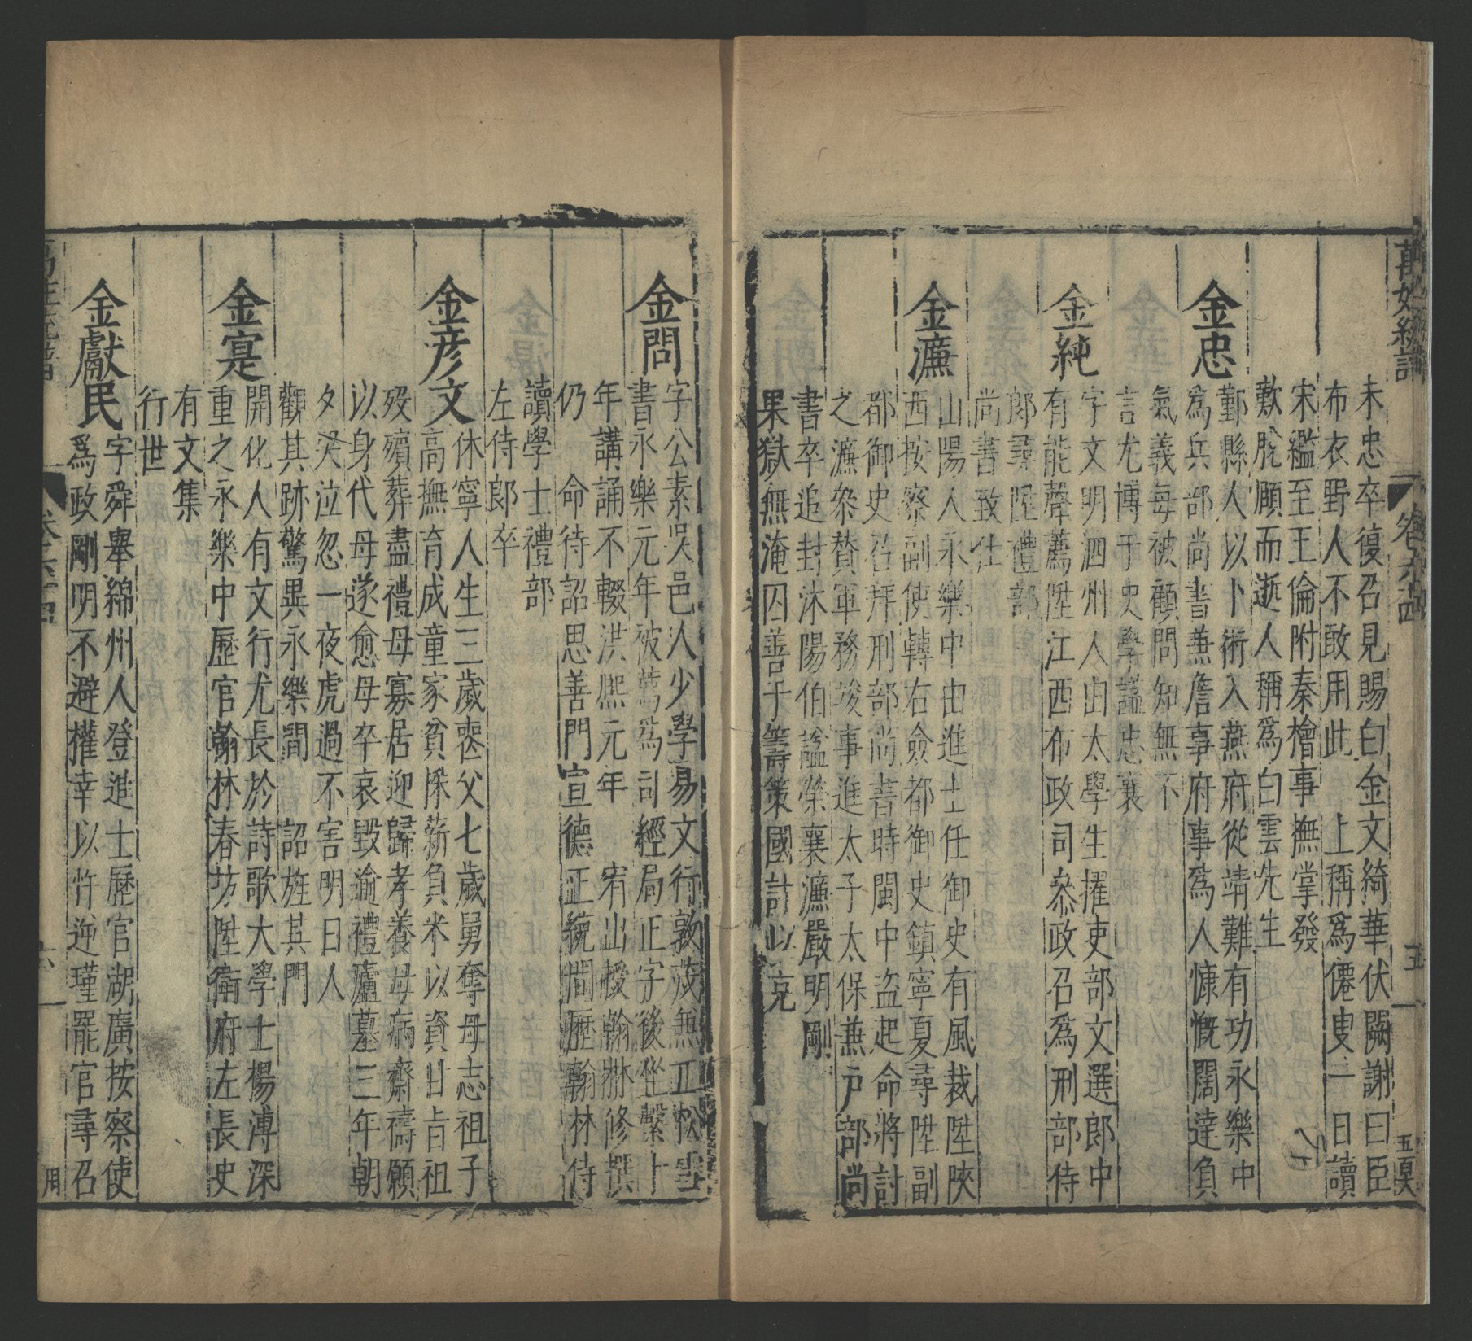 萬姓統譜
卷六十四
五
未忠卒復召見賜白金文綺華伏闕謝曰臣
布衣野人不敢用此 上稱爲僊叟一日讀
宋鑑至王倫附秦檜事撫掌發
歎脫頤而逝人稱爲白雲先生
金忠
鄞縣人以卜術入燕府從靖難有功永樂中
爲兵部尚書兼詹事府事爲人慷慨闊達負
氣義每被顧問知無不
言尤博于史學謚忠襄
金純
字文明泗州人由太學生擢吏部文選郎中
有能聲薦陞江西布政司叅政召爲刑部侍
郎尋陞禮部
尚書致仕
金濂
山陽人永樂中由進士任御史有風裁陞陝
西按察副使轉右僉都御史鎮寧夏尋陞副
都御史召拜刑部尚書時閩中盜起命將討
之濂叅贊軍務竣事進太子太保兼戶部尚
書卒追封沭陽伯謚榮襄濂嚴明剛
果獄無淹囚善于籌策國計以充
金問
字公素吳邑人少學易文行敦茂無
書永樂元年被薦爲司經局正字後坐繫十
年講誦不輟洪熙元年 宥出授翰林修撰
仍 命待詔思善門宣德正統間歷翰林侍
讀學士禮部
左侍郎卒
金彥文
休寧人生三歲喪父七歲舅奪母志祖子
高撫育成童家貧採薪負米以資甘旨祖
歿殯葬盡禮母寡居迎歸孝養母病齋禱願
以身代母遂愈母卒哀毀逾禮廬墓三年朝
夕哭泣忽一夜虎過不害明日人
觀其跡驚異永樂間 詔旌其門
金寔
開化人有文行尤長於詩歌大學士楊溥深
重之永樂中歷官翰林春坊陞衛府左長史
有文集
行世
金獻民
字舜舉綿州人登進士歷官湖廣按察使
爲政剛明不避權幸以忤逆瑾罷官尋召
用